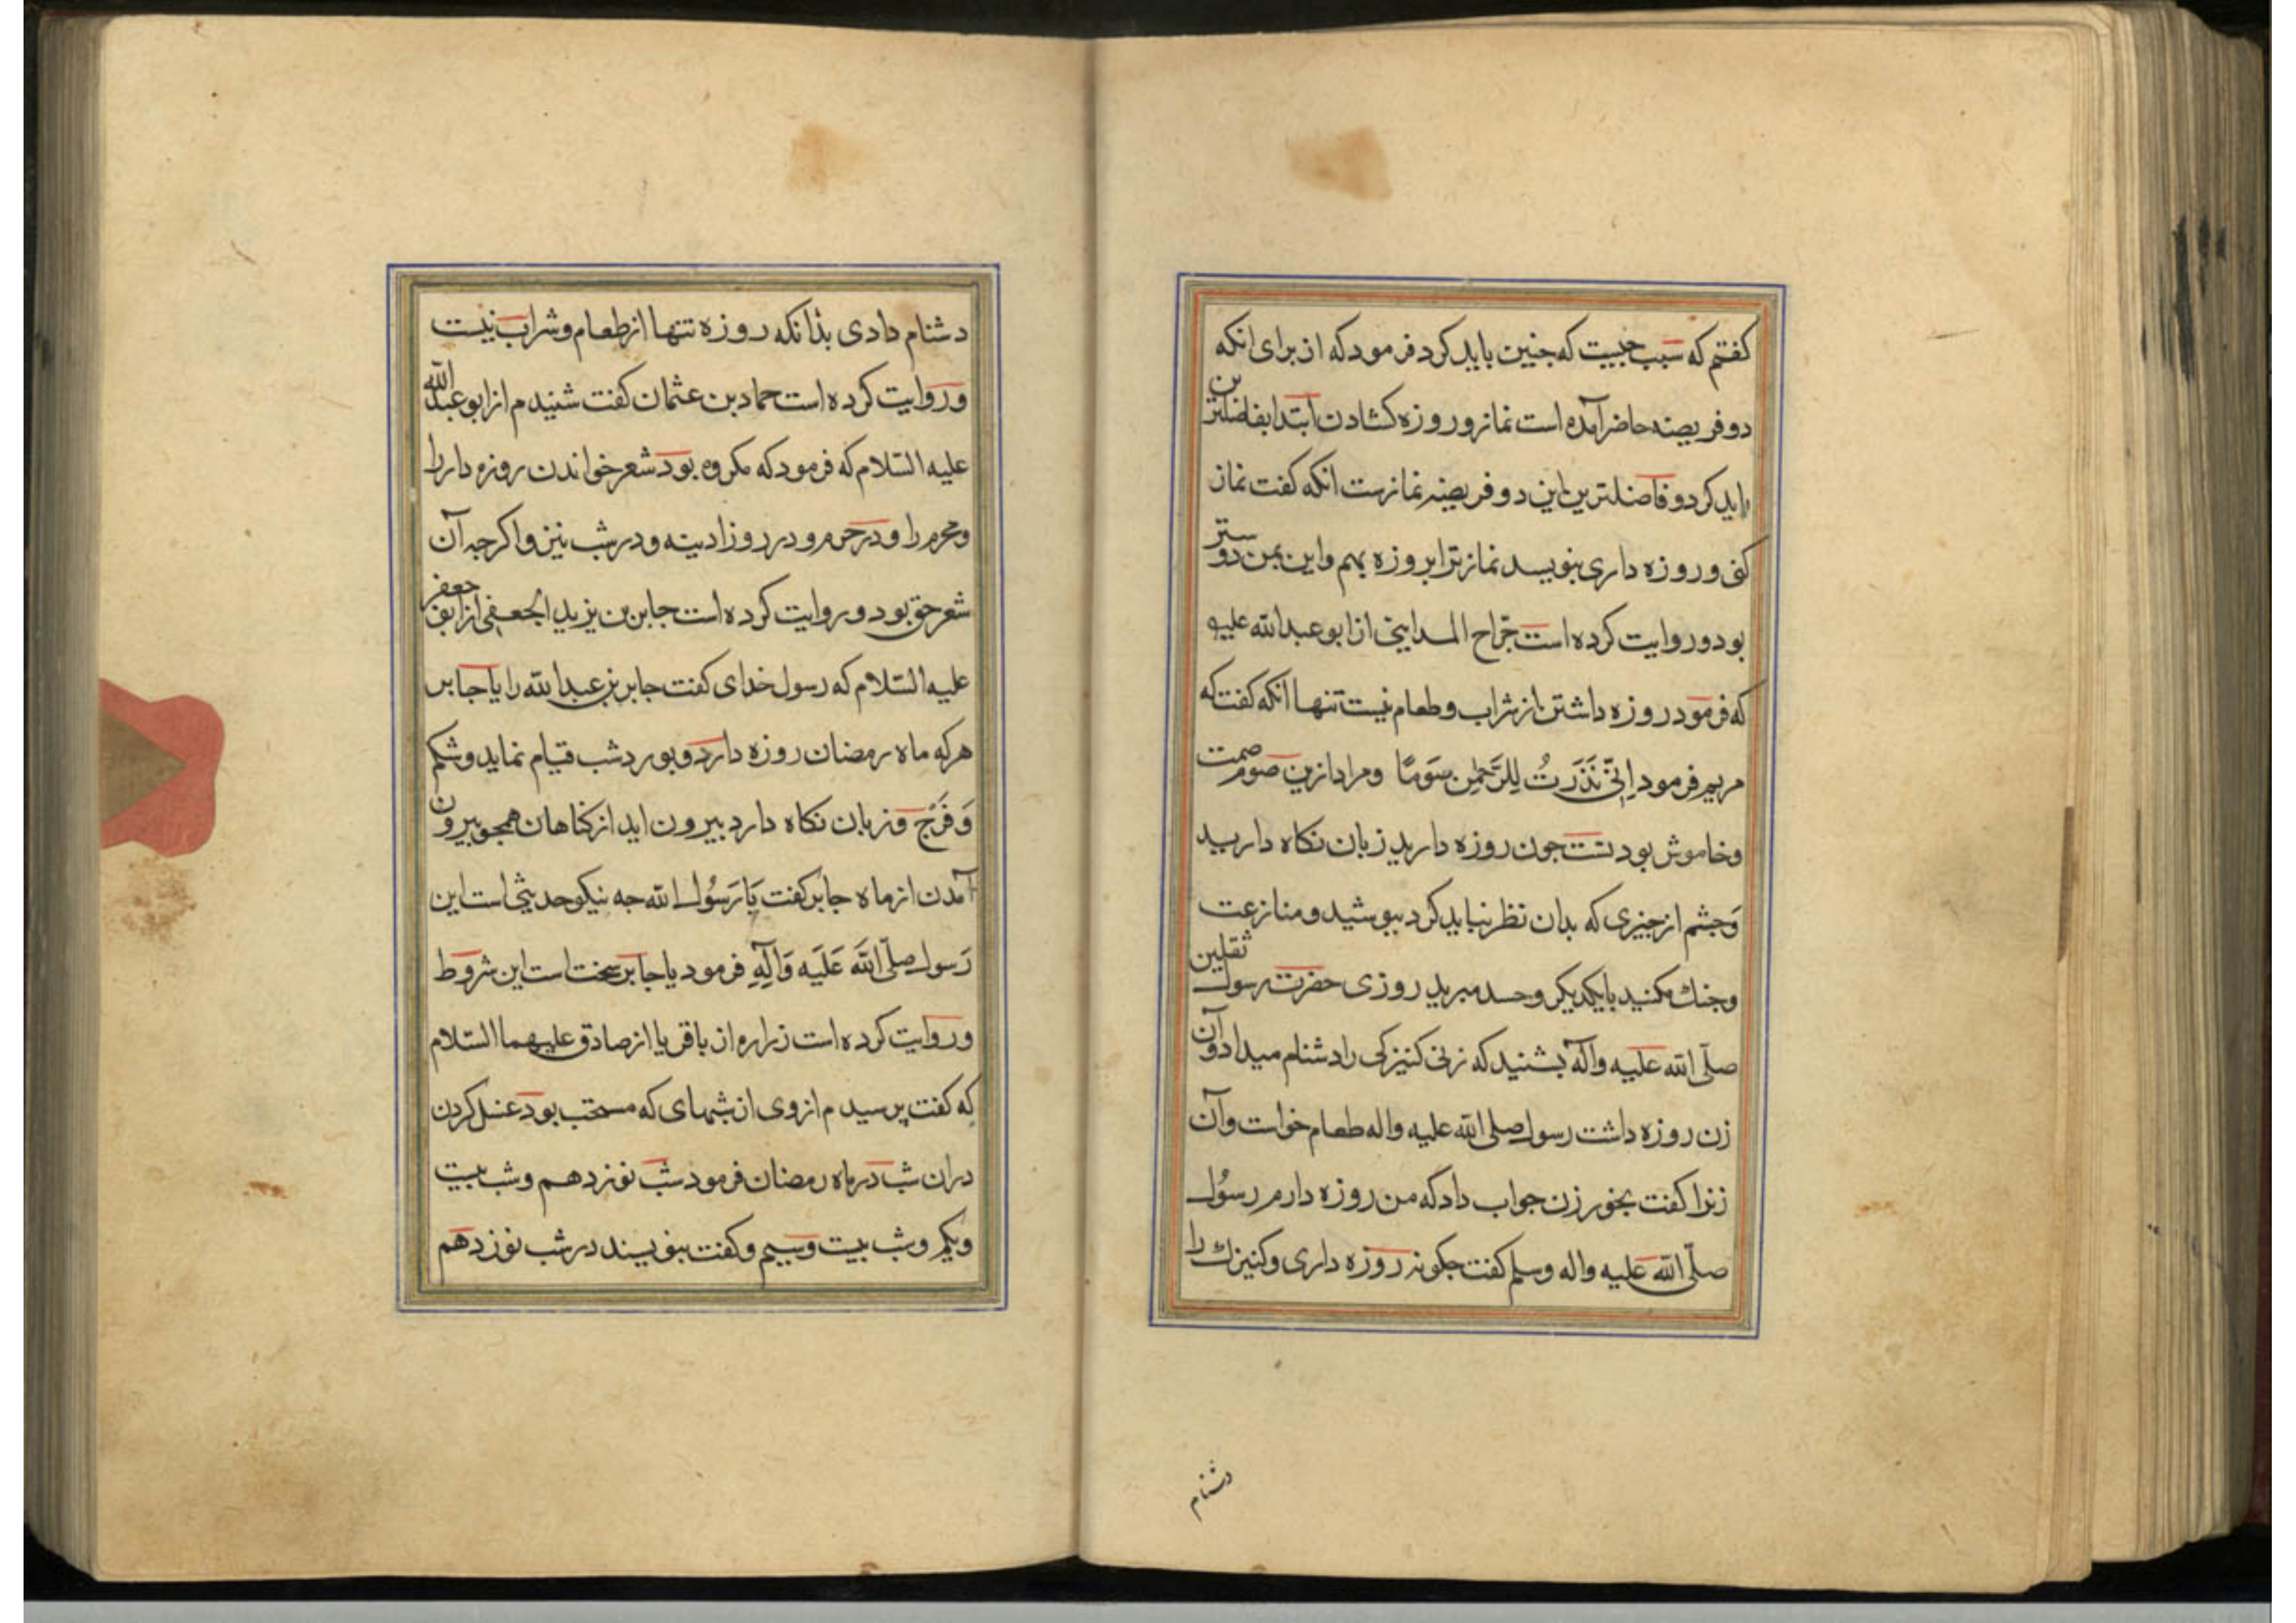 کفتم که سبب جیست که جنین باید کرد فرمود که از برای انکه
دو فریضه حاضر آمده است نماز و روزه کشادن ابتدا بفاضلترین
باید کرد و فاضلترین این دو فریضه نمازست انکه کفت نماز
کنی و روزه داری بنویسد نماز ترا بروزه بهم و این بمن دوستر
بود و روایت کرده است جراح المداینی از ابو عبدالله علیه
که فرمود روزه داشتن از شراب و طعام نیست تنها انکه کفت که
مریم فرمود اِنّی نَذَرتُ لِلرَّحمٰنِ سَومًا ومراد ازین صوم صمت
وخاموش بودنست جون روزه دارید زبان نکاه دارید
وَجشم از جیزی که بدان نظر نباید کرد ببوشید و منازعت
وجنك مکنید بایکدیکر و حسد مبرید روزی حضرت رسول ثقلین
صلّی الله علیه وآله بشنید که زنی کنیزکی را دشنام میداد و آن
زن روزه داشت رسول صلی الله علیه واله طعام خواست وآن
زنرا کفت بخور زن جواب داد که من روزه دارم رسُول
صلّی الله علیه واله وسلم کفت جکونه روزه داری و کنیزك را
دشنام
دشنام دادی بذانکه روزه تنها از طعام و شراب نیست
وروایت کرده است حماد بن عثمان کفت شنیدم از ابو عبدالله
علیه السّلام که فرمود که مکروه بود شعر خواندن روزه دار را
ومحرم را و در حرم و در روز ادینه و در شب نیز و اکرجه آن
شعر حق بود و روایت کرده است جابر بن یزید الجعفی از ابو جعفر
علیه السّلام که رسول خدای کفت جابر بن عبدالله را یا جابر
هر که ماه رمضان روزه دارد و بورد شب قیام نماید و شکم
وَ فَرْج و زبان نکاه دارد بیرون اید از کناهان همجو بیرون
آمدن از ماه جابر کفت یَا رَسُول الله جه نیکو حدیثی است این
رَسول صلّی اللهَ عَلَیَه وَآلِهِ فرمود یا جابر سخت است این شروط
وروایت کرده است زراره از باقر یا از صادق علیهما السّلام
که کفت پرسیدم از وی از شبهای که مستحب بود غسل کردن
دران شب در ماه رمضان فرمود شب نوزدهم و شب بیست
ویکم و شب بیست وسیم و کفت بنویسند در شب نوزدهم